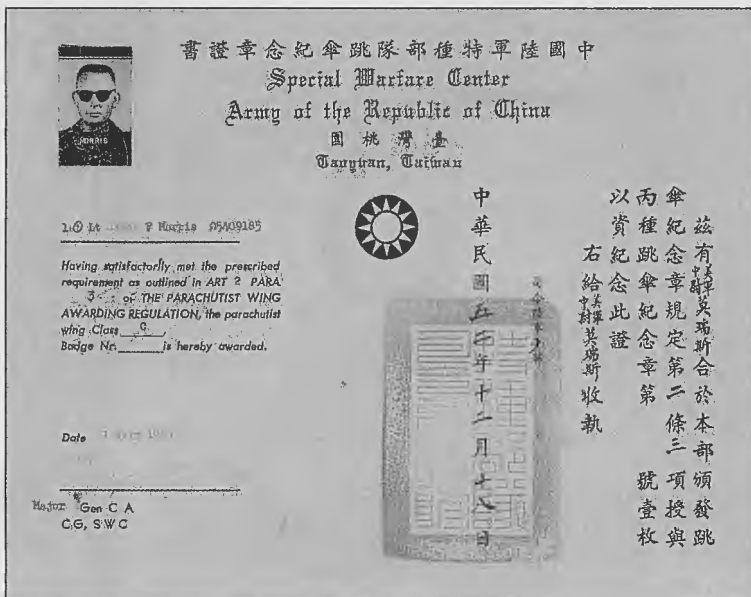 中國陸軍特種部隊跳傘紀念章證書
Special Warfare Center
Army of the Republic of China
臺灣桃園
Taoyuan, Taiwan
MORRIS
Lt P Morris 05409185
Having satisfactorily met the prescribed
requirement as outlined in ART 2 PARA
3 of THE PARACHUTIST WING
AWARDING REGULATION, the parachutist
wing Class C
Badge Nr. is hereby awarded.
Date
Major Gen C A
CG, SWC
茲有美軍中尉莫瑞斯合於本部頒發跳
傘紀念章規定第二條三項授與
丙種跳傘紀念章第 號壹枚
以資紀念此證
右給美軍中尉莫瑞斯收執
中華民國五 年十二月十八日